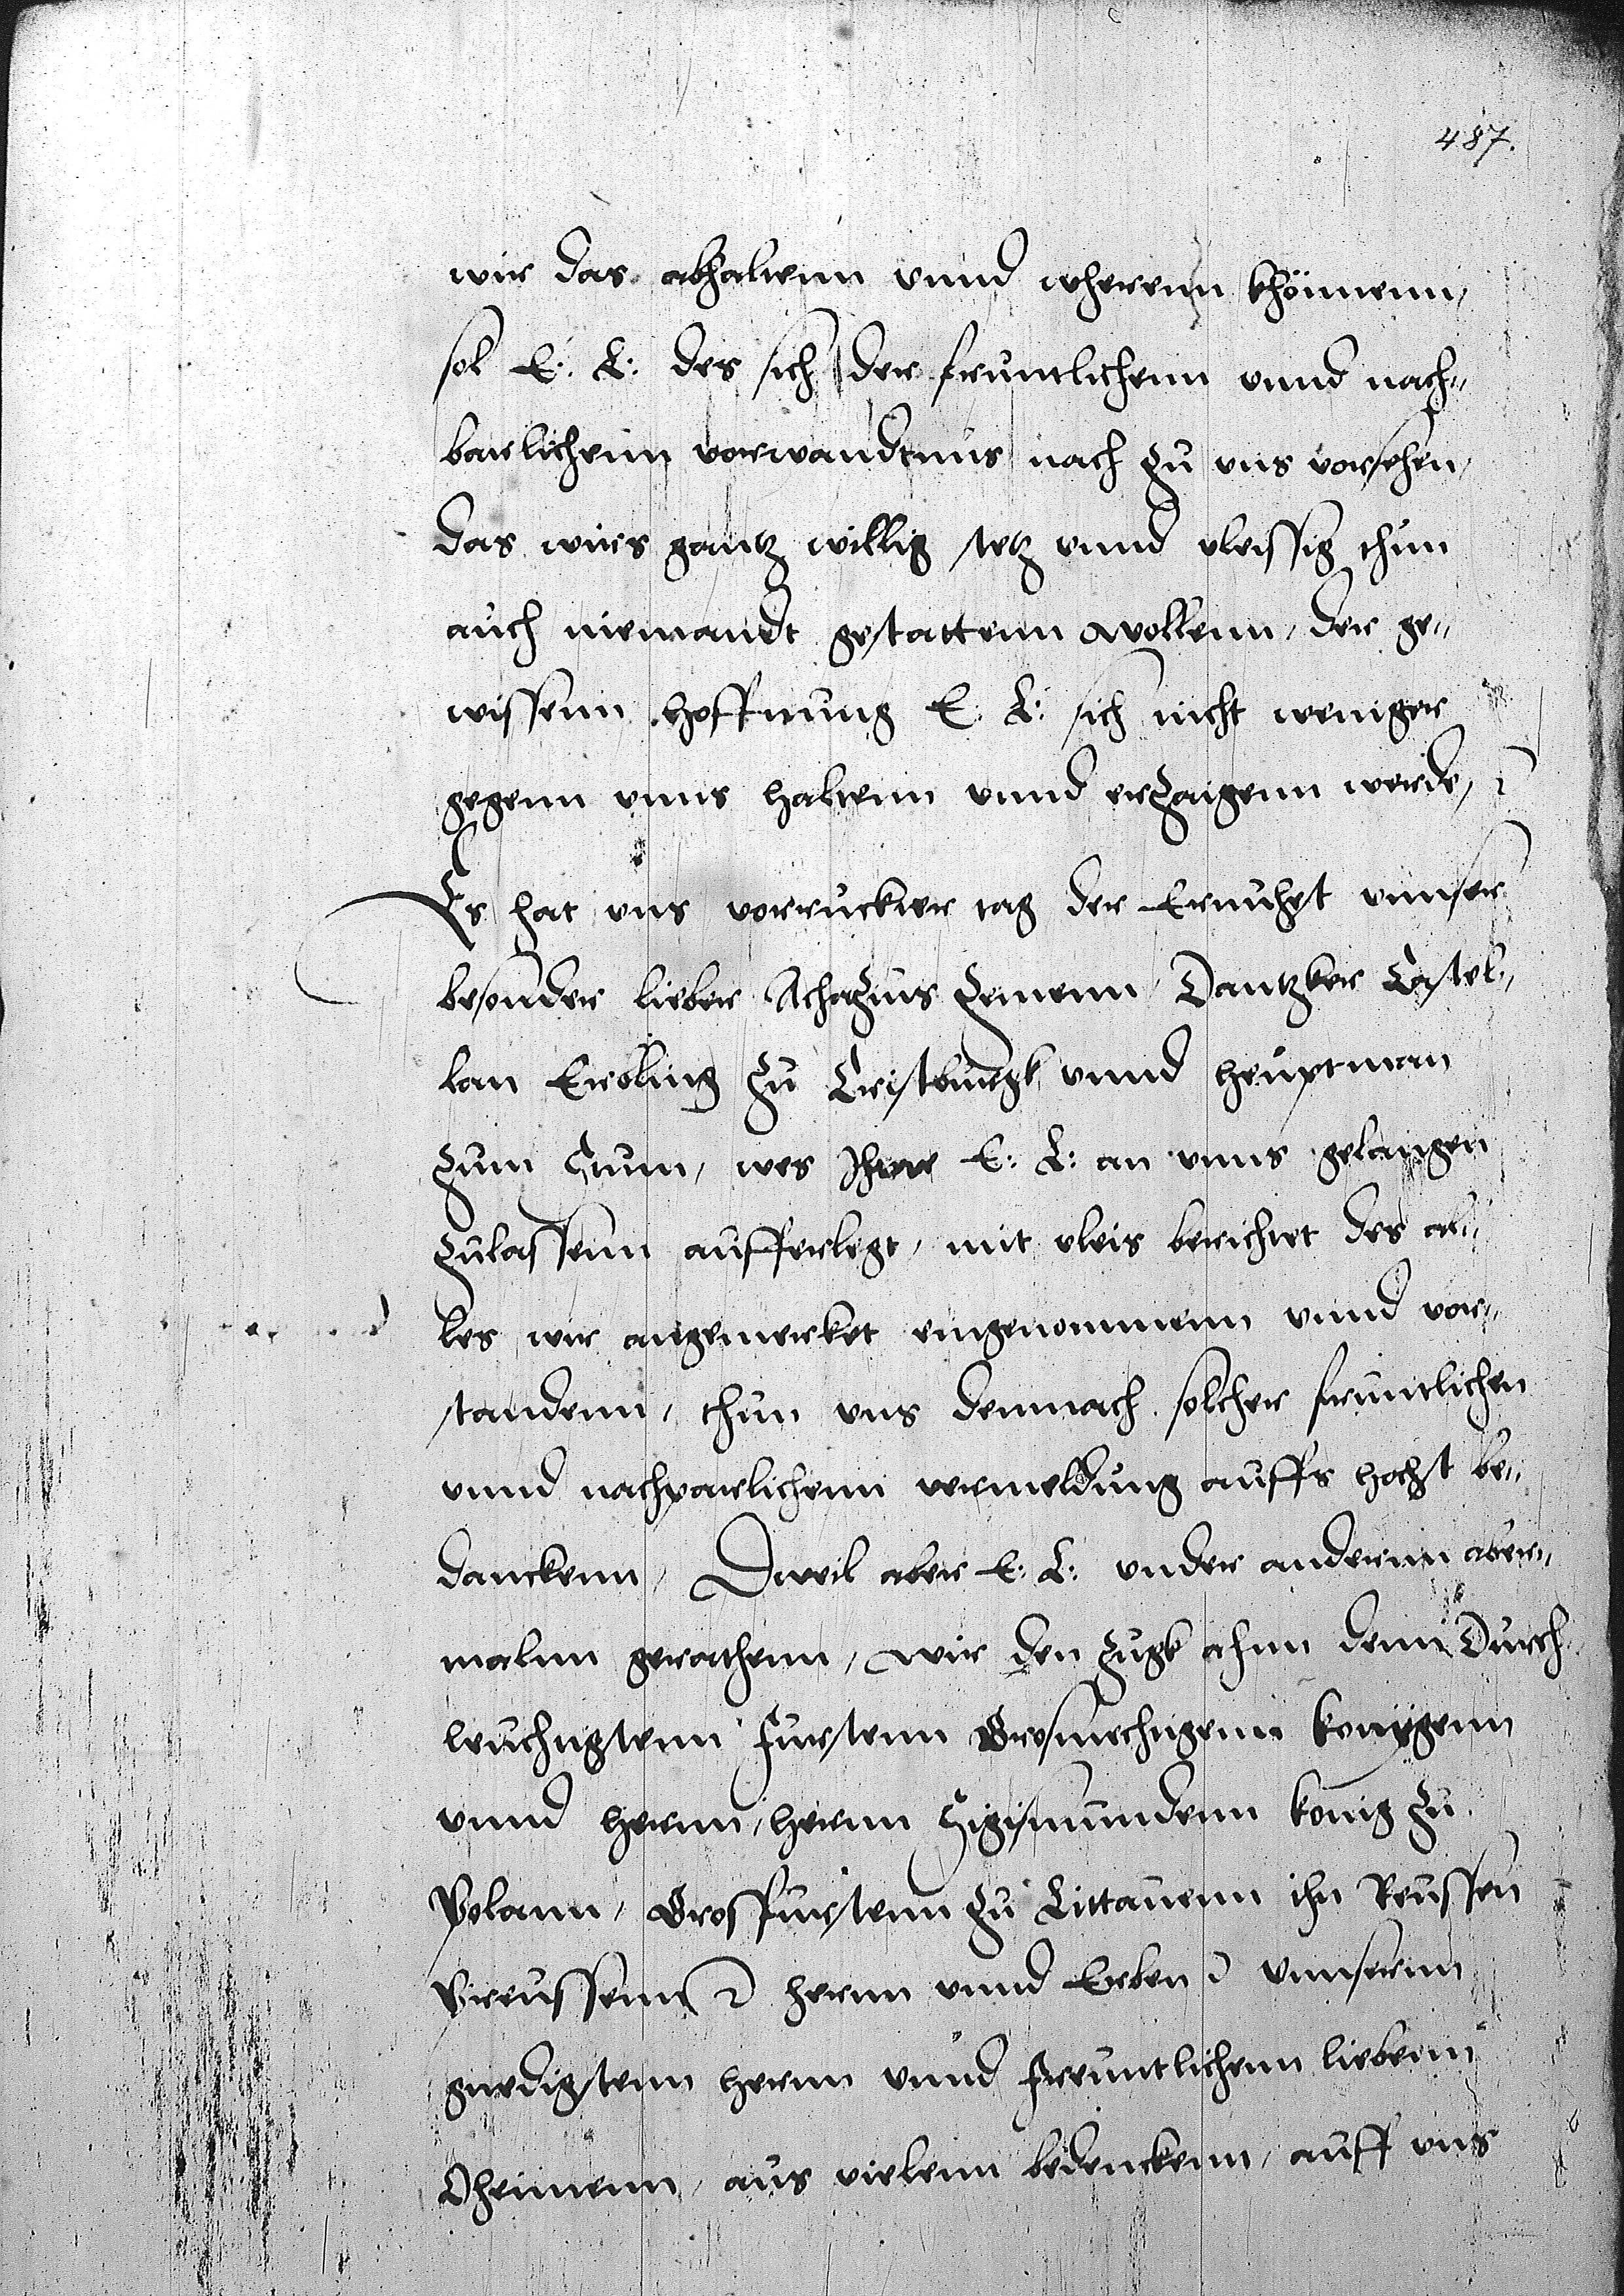 487.
wir das abhaltenn vnnd wherenn khönnenn,
sol E: L: des sich der fruntlichenn vnnd nach„
barlichenn vorwandtnus nach zu vns vorsehen,
das wirs gantz willig stetz vnnd vleissig thun
auch niemandt gestattenn wollenn, der ge„
wissenn hoffnung E: L: sich nicht weniger
gegenn vnns haltenn vnnd erzaigenn werde,
Es hat vns vorruckter tag der Ernuhest vnnser
besonder lieber Achazius Zemenn, Dantzker Castel„
lan Erbling zu Cristburgk vnnd heuptman
zum Stum, wes Ihme E: L: an vnns gelangen
zulassenn aufferlegt, mit vleis berichtet des al„
les wir angemerket eingenommenn vnnd vor„
standenn, thun vns demnach solcher fruntlichen
vnnd nachparlichenn vermeldung auffs hochst be„
danckenn, Dweil aber E: L: vnder anderenn aber„
malnn gerathenn, wir den zugk ahnn denn Durch„
leuchtigstenn Furstenn Grosmechtigenn konygenn
vnnd hernn, hernn Sigismundenn konig zu
Polann, Grosfurstenn zu Littauenn ihn Reussen
Preussenn hernn vnnd Erben vnnsernn
gnedigstenn hernn vnnd freuntlichenn liebenn
Oheimenn, aus vielenn bedenckenn, auff vns